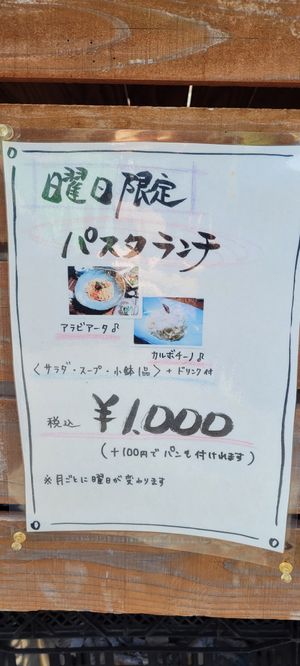 曜日限定
パスタランチ
アラビアータ♪
カルボナーラ♪
〈サラダ・スープ・小鉢1品〉+ドリンク付
税込 ¥1,000
(+100円でパンも付けれます)
※月ごとに曜日が変わります